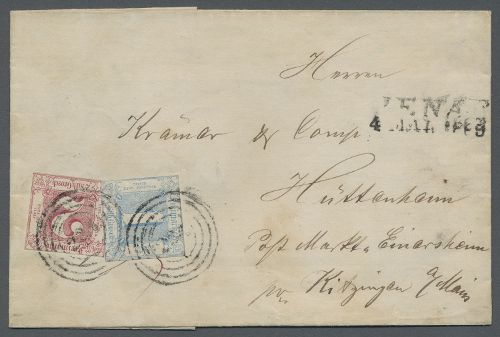 Herren
JENA
4 MAI 1863
Krämer & Comp.
Hüttenheim
Post Markt Einersheim
per Kitzingen a/Main